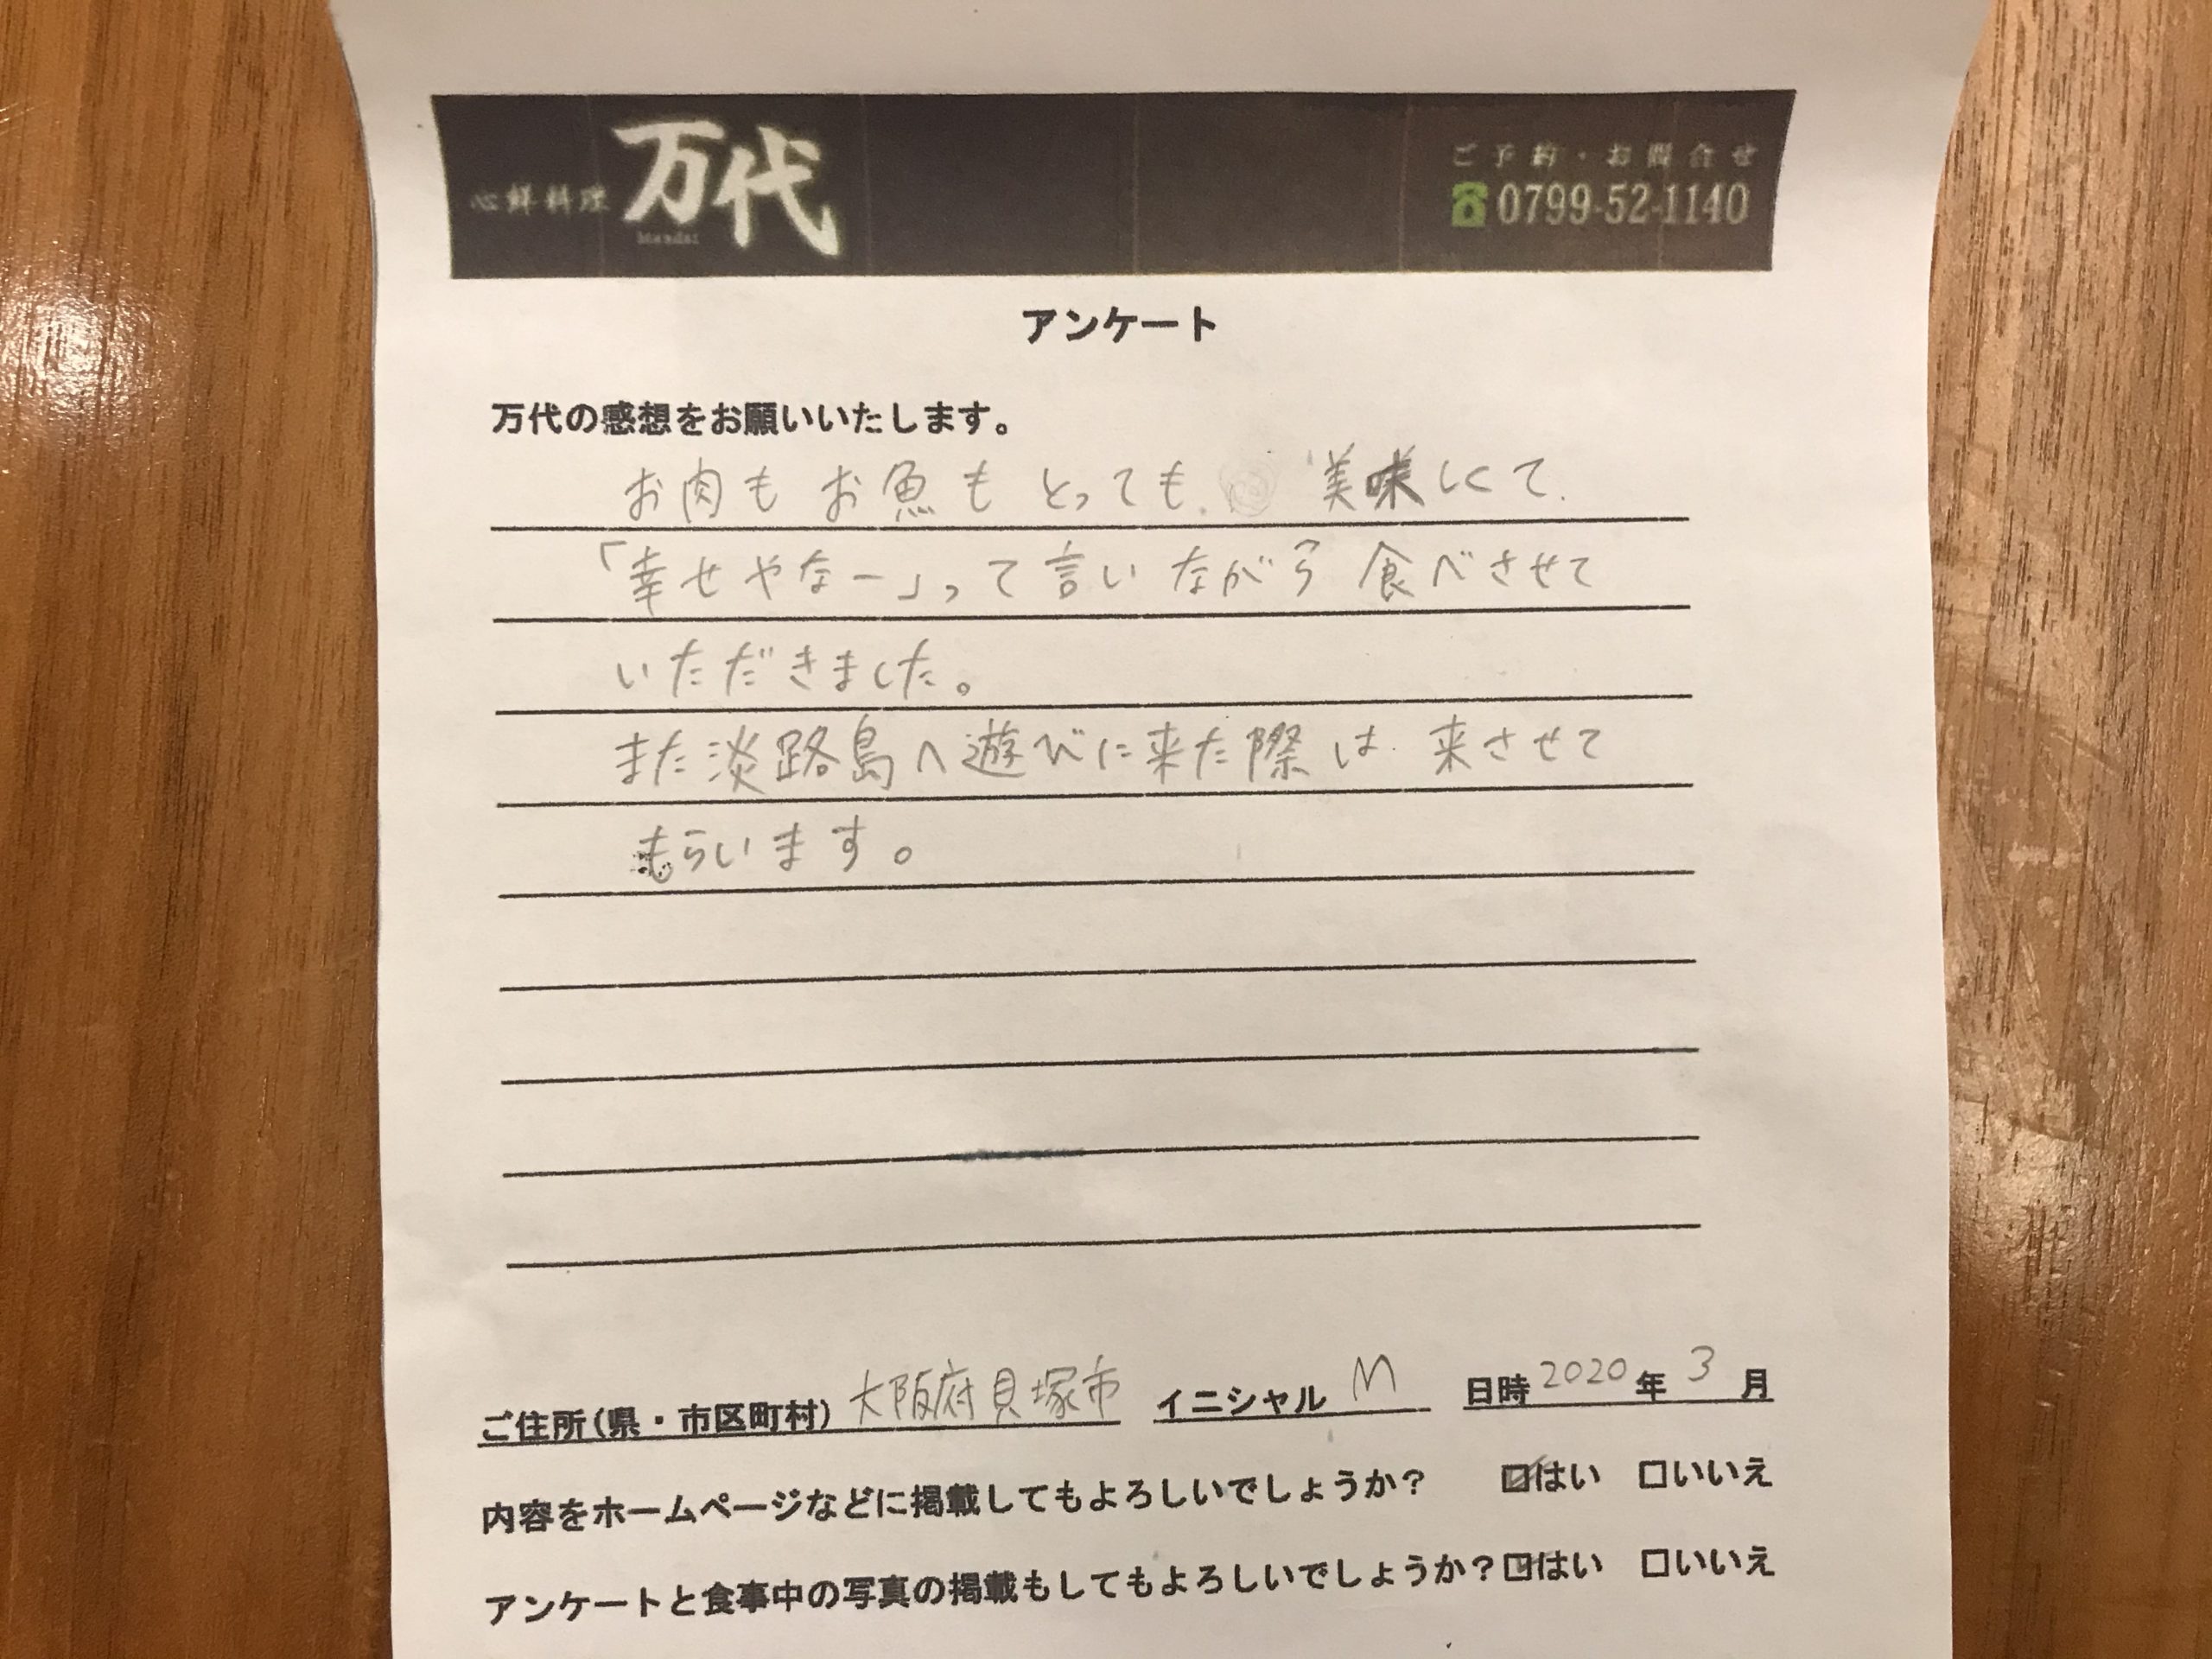 心鮮料理 万代
ご予約・お問合せ
0799-52-1140
アンケート
万代の感想をお願いいたします。
お肉もお魚もとっても 美味しくて、
「幸せやなー」って言いながら食べさせて
いただきました。
また淡路島へ遊びに来た際は 来させて
もらいます。
ご住所(県・市区町村) 大阪府貝塚市 イニシャル M 日時 2020年 3 月
内容をホームページなどに掲載してもよろしいでしょうか? ☑はい □いいえ
アンケートと食事中の写真の掲載もしてもよろしいでしょうか?☑はい □いいえ